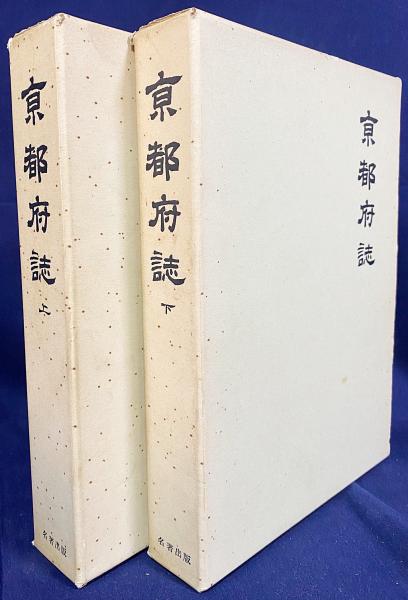 京都府誌
上
名著出版
京都府誌
下
名著出版
京都府誌